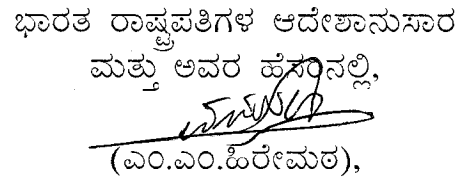 ಭಾರತ ರಾಷ್ಟ್ರಪತಿಗಳ ಆದೇಶಾನುಸಾರ
ಮತ್ತು ಅವರ ಹೆಸರಿನಲ್ಲಿ,
(ಎಂ.ಎಂ.ಹಿರೇಮಠ),